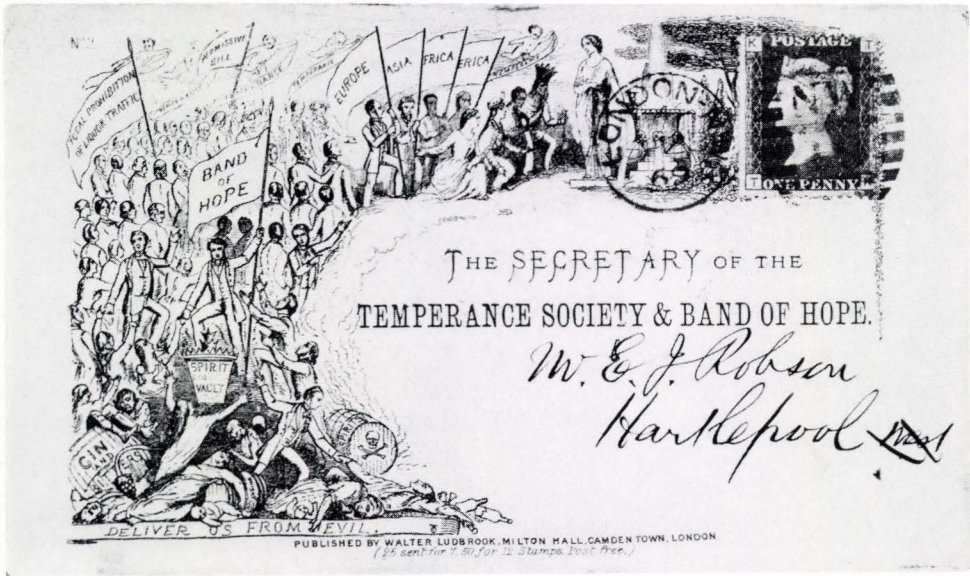 No. 2
TOTAL PROHIBITION
OF LIQUOR TRAFFIC
PERMISSIVE
BILL
TEMPERANCE
EUROPE
ASIA
FRICA
ERICA
BAND
OF
HOPE
LONDON
K POSTAGE T
T ONE PENNY K
THE SECRETARY OF THE
TEMPERANCE SOCIETY & BAND OF HOPE.
Mr. E. J. Robson
Hartlepool West
SPIRIT
VAULT
GIN
DELIVER US FROM EVIL.
PUBLISHED BY WALTER LUDBROOK, MILTON HALL, CAMDEN TOWN, LONDON
(25 sent for 7. 50 for 12 Stamps. Post free.)